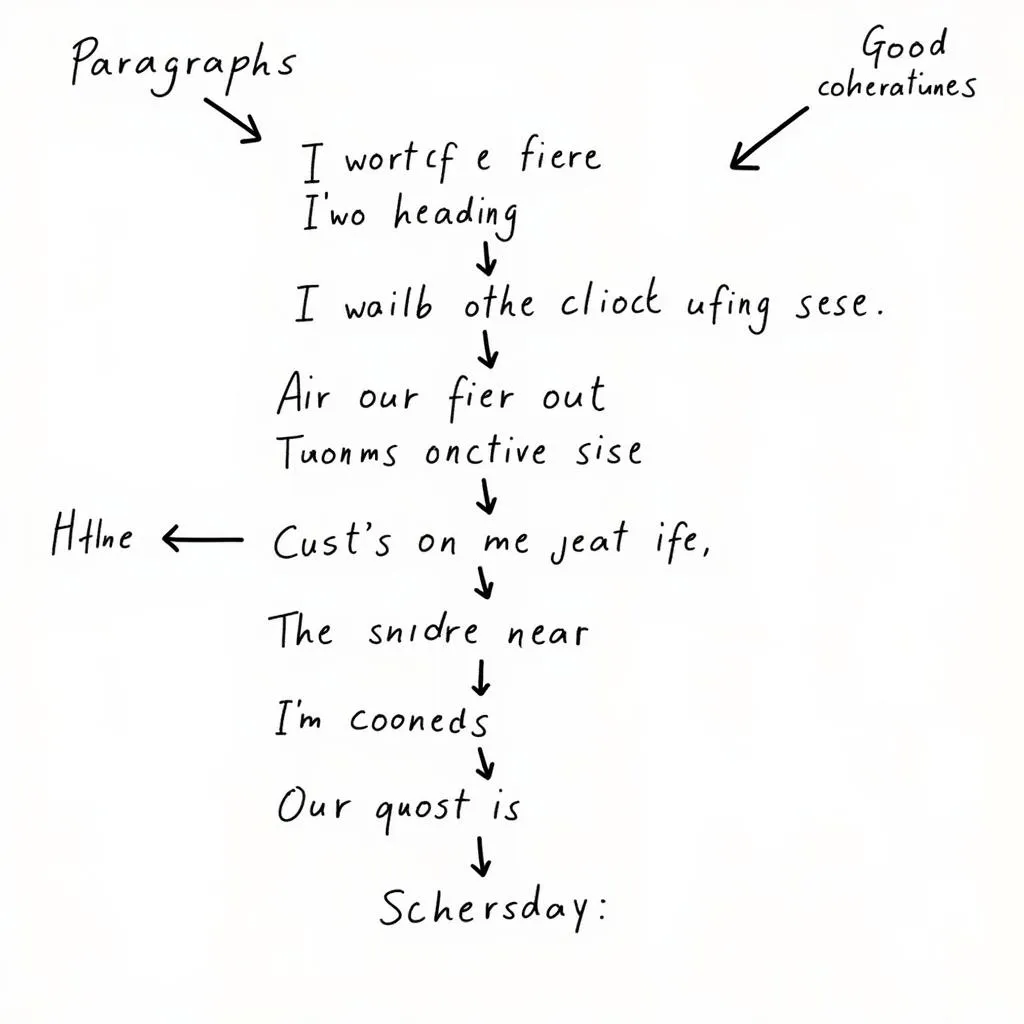 Paragraphs
Good
coheratiunes
I wortcf e fiere
I'wo heading
I wailb othe cliock ufing sese.
Air our fier out
Tuonms onctive sise
Hflne
Cust's on me jeat ife,
The snidre near
I'm cooneds
Our quost is
Schersday: